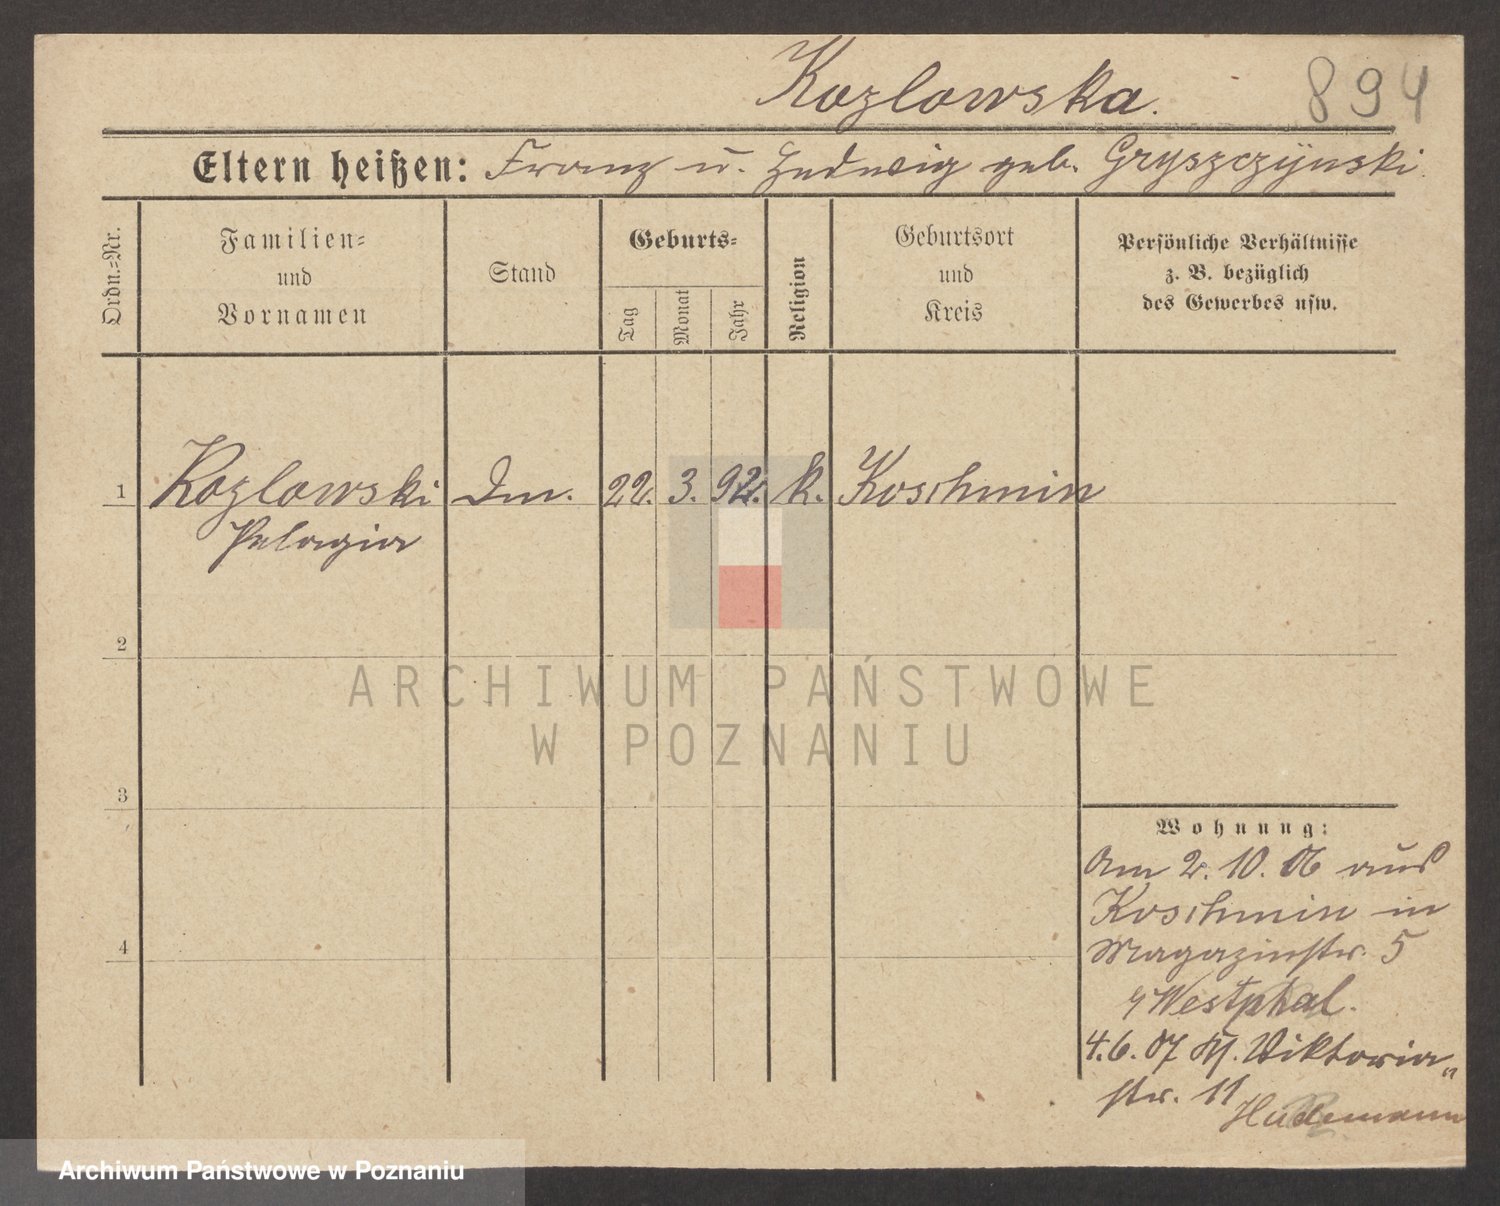 Kozlowska.
894
Eltern heißen: Franz u. Hedwig geb. Gryszczynski.
Ordn.=Nr.
Familien=
und
Vornamen
Stand
Geburts=
Tag
Monat
Jahr
Religion
Geburtsort
und
Kreis
Persönliche Verhältnisse
z. B. bezüglich
des Gewerbes usw.
1 Kozlowski 22. 3. 92. k. Koschmin
Pelagia
2
3
4
Wohnung:
Am 2. 10. 06 aus
Koschmin in
Magazinstr. 5
Westphal.
4.6.07 Viktoria„
str. 11
Hüdemann
ARCHIWUM PAŃSTWOWE
W POZNANIU
Archiwum Państwowe w Poznaniu